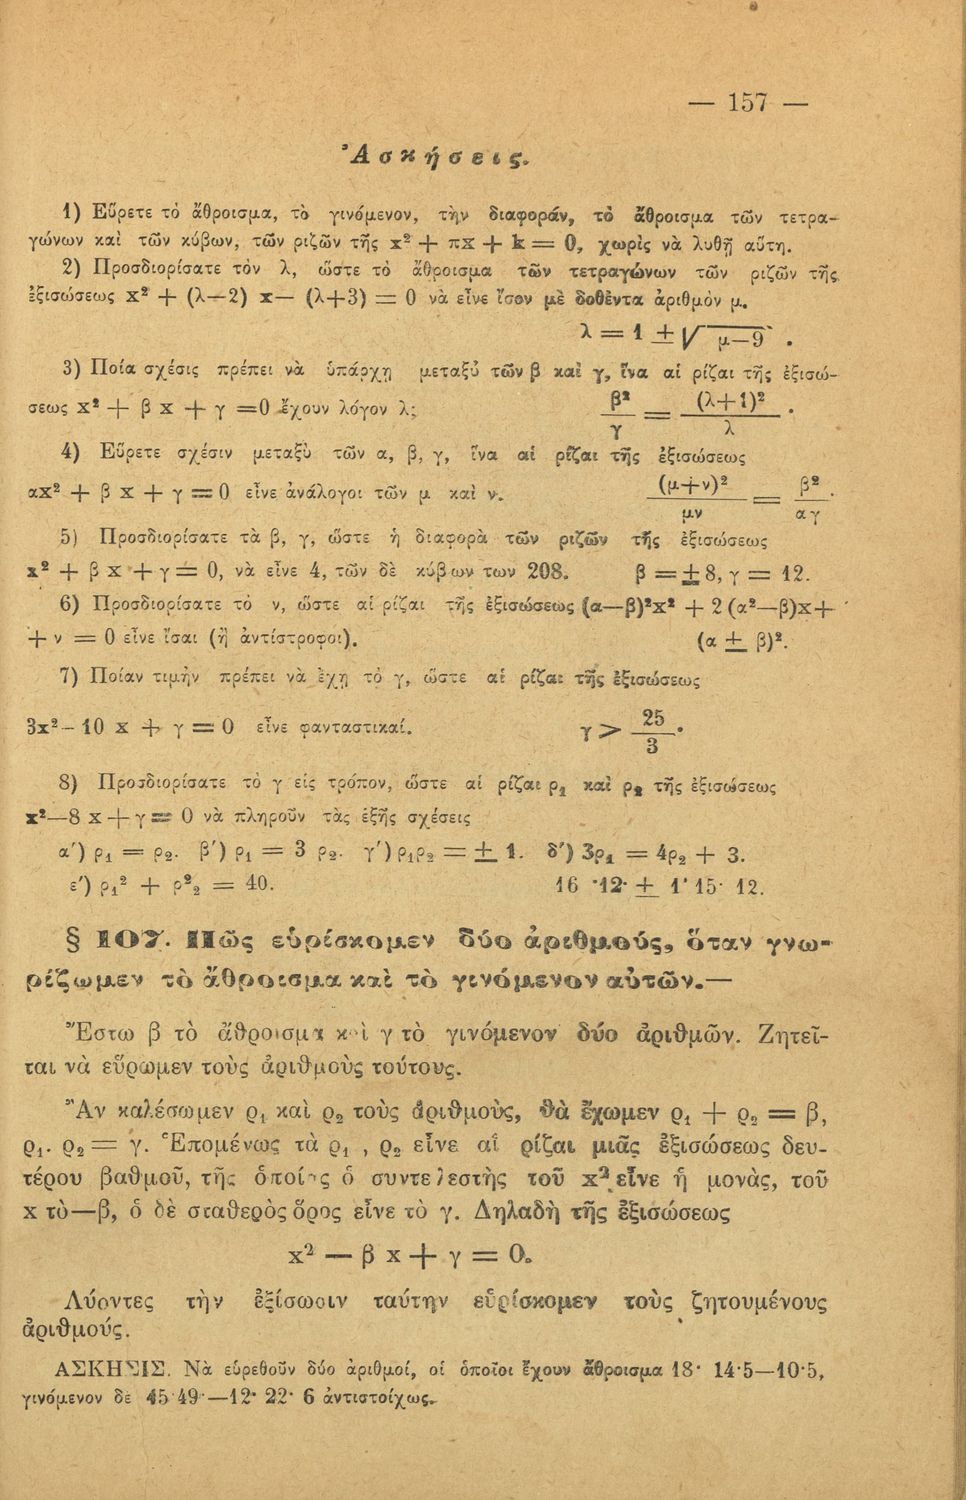 — 157 —
Ἀσκήσεις.
1) Εὕρετε τὸ ἄθροισμα, τὸ γινόμενον, τὴν διαφοράν, τὸ ἄθροισμα τῶν τετρα-
γώνων καὶ τῶν κύβων, τῶν ριζῶν τῆς x² + πx + k = 0, χωρὶς νὰ λυθῇ αὕτη.
2) Προσδιορίσατε τὸν λ, ὥστε τὸ ἄθροισμα τῶν τετραγώνων τῶν ριζῶν τῆς
ἐξισώσεως x² + (λ—2) x— (λ+3) = 0 νὰ εἶνε ἴσον μὲ δοθέντα ἀριθμὸν μ.
λ = 1 ± √μ—9 .
3) Ποία σχέσις πρέπει νὰ ὑπάρχῃ μεταξὺ τῶν β καὶ γ, ἵνα αἱ ρίζαι τῆς ἐξισώ-
σεως x² + β x + γ =0 ἔχουν λόγον λ; β²/γ = (λ+1)²/λ .
4) Εὕρετε σχέσιν μεταξὺ τῶν α, β, γ, ἵνα αἱ ρίζαι τῆς ἐξισώσεως
αx² + β x + γ = 0 εἶνε ἀνάλογοι τῶν μ καὶ ν. (μ+ν)²/μν = β²/αγ.
5) Προσδιορίσατε τὰ β, γ, ὥστε ἡ διαφορὰ τῶν ριζῶν τῆς ἐξισώσεως
x² + β x + γ = 0, νὰ εἶνε 4, τῶν δὲ κύβων των 208. β = ± 8, γ = 12.
6) Προσδιορίσατε τὸ ν, ὥστε αἱ ρίζαι τῆς ἐξισώσεως (α—β)²x² + 2 (α²—β)x+
+ ν = 0 εἶνε ἴσαι (ἢ ἀντίστροφοι). (α ± β)².
7) Ποίαν τιμὴν πρέπει νὰ ἔχῃ τὸ γ, ὥστε αἱ ρίζαι τῆς ἐξισώσεως
3x²- 10 x + γ = 0 εἶνε φανταστικαί. γ > 25/3.
8) Προσδιορίσατε τὸ γ εἰς τρόπον, ὥστε αἱ ρίζαι ρ₁ καὶ ρ₂ τῆς ἐξισώσεως
x²—8 x + γ = 0 νὰ πληροῦν τὰς ἑξῆς σχέσεις
α΄) ρ₁ = ρ₂. β΄) ρ₁ = 3 ρ₂. γ΄) ρ₁ρ₂ = ± 1. δ΄) 3ρ₁ = 4ρ₂ + 3.
ε΄) ρ₁² + ρ²₂ = 40. 16 ·12· ± 1· 15· 12.
§ 107. Πῶς εὑρίσκομεν δύο ἀριθμούς, ὅταν γνω-
ρίζωμεν τὸ ἄθροισμα καὶ τὸ γινόμενον αὐτῶν.—
Ἔστω β τὸ ἄθροισμα καὶ γ τὸ γινόμενον δύο ἀριθμῶν. Ζητεῖ-
ται νὰ εὕρωμεν τοὺς ἀριθμοὺς τούτους.
Ἂν καλέσωμεν ρ₁ καὶ ρ₂ τοὺς ἀριθμούς, θὰ ἔχωμεν ρ₁ + ρ₂ = β,
ρ₁. ρ₂ = γ. Ἑπομένως τὰ ρ₁ , ρ₂ εἶνε αἱ ρίζαι μιᾶς ἐξισώσεως δευ-
τέρου βαθμοῦ, τῆς ὁποίας ὁ συντελεστὴς τοῦ x² εἶνε ἡ μονὰς, τοῦ
x τὸ—β, ὁ δὲ σταθερὸς ὅρος εἶνε τὸ γ. Δηλαδὴ τῆς ἐξισώσεως
x² — β x + γ = 0.
Λύοντες τὴν ἐξίσωσιν ταύτην εὑρίσκομεν τοὺς ζητουμένους
ἀριθμούς.
ΑΣΚΗΣΙΣ. Νὰ εὑρεθοῦν δύο ἀριθμοί, οἱ ὁποῖοι ἔχουν ἄθροισμα 18· 14·5—10·5,
γινόμενον δὲ 45·49·—12· 22· 6 ἀντιστοίχως.